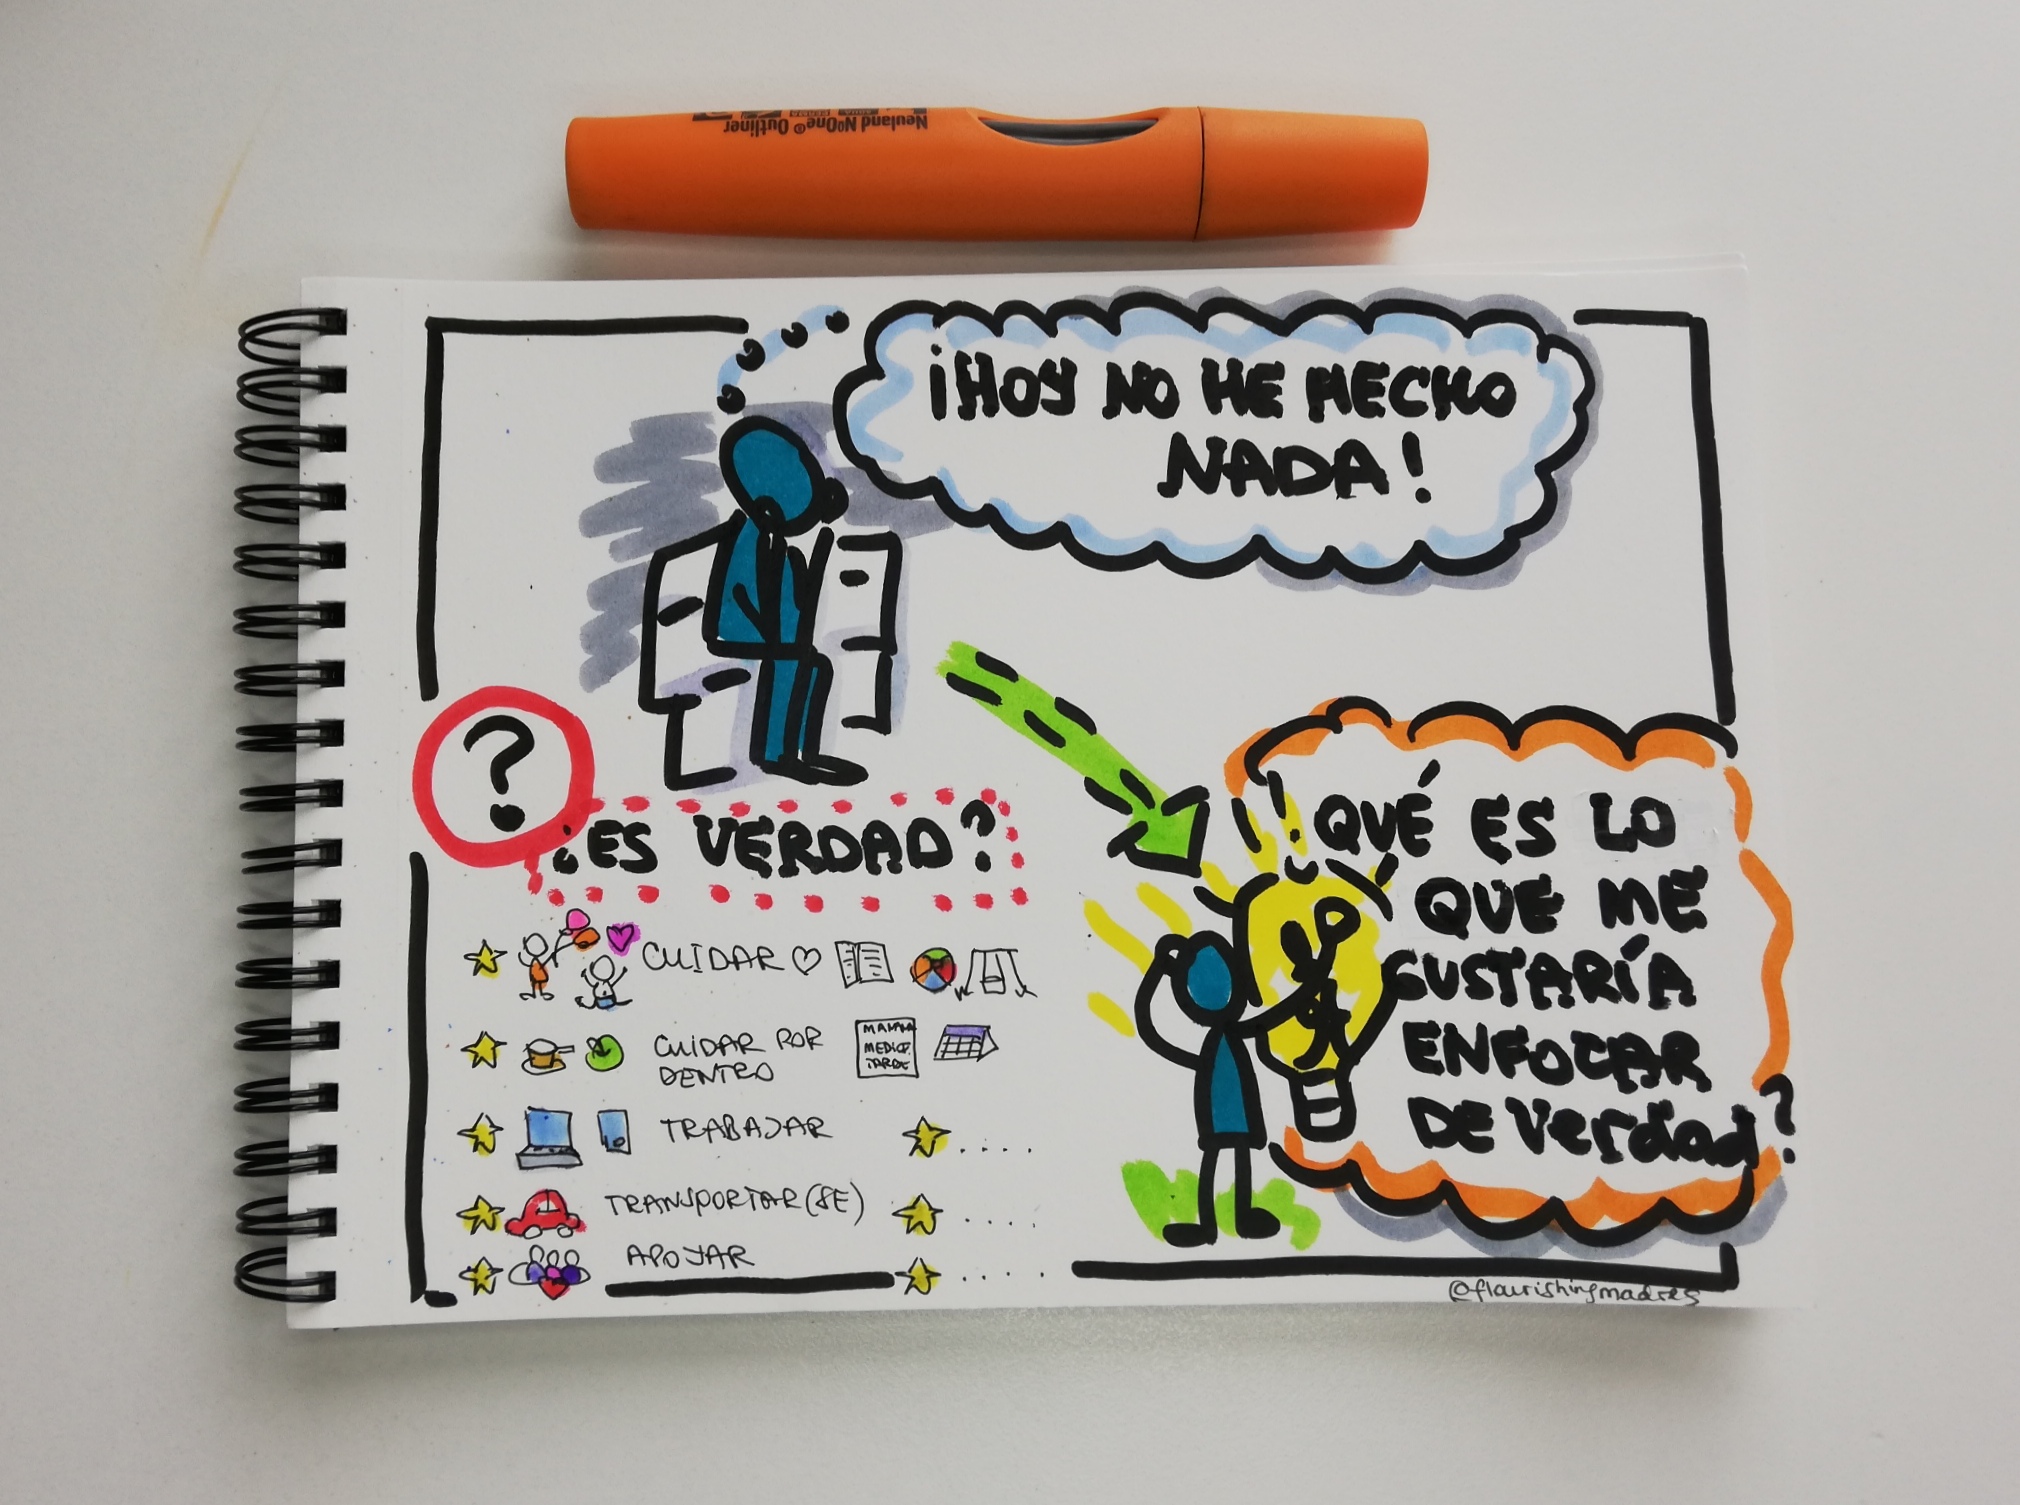 Neuland NºOne® Outliner
¡HOY NO HE HECHO
NADA!
?
¿ES VERDAD?
CUIDAR
CUIDAR POR
DENTRO
MAÑANA
MEDICO
TARDE
TRABAJAR
.....
TRANSPORTAR(SE)
....
APOYAR
.....
¿QUÉ ES LO
QUE ME
GUSTARÍA
ENFOCAR
DE Verdad?
@flourishingmadres